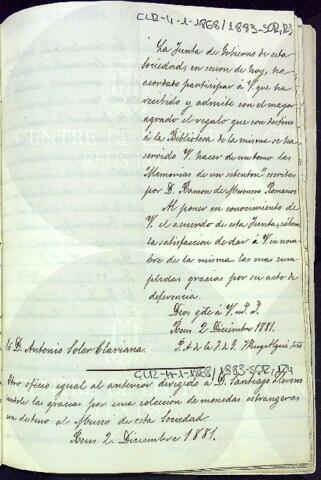 CLR-4-1-1868/1883-SOR,123
La Junta de Gobierno de esta
sociedad, en sesion de hoy, ha
acordado participar á V. que ha
recibido y admite con el mayor
agrado el regalo que con destino
á la Biblioteca de la misma se ha
servido V. hacer de un tomo las
"Memorias de un setenton" escritas
por D. Ramon de Mesonero Romanos
Al poner en conocimiento de
V. el acuerdo de esta Junta, cábeme
la satisfaccion de dar á V. en nom-
bre de la misma las mas cum-
plidas gracias por su acto de
deferencia.
Dios gde á V. m. a.
Reus 2 Diciembre 1881.
Sr. D. Antonio Soler Clariana.
P. A. de la J. de G.
CLR-4-1-1868/1883-SOR,124
Otro oficio igual al anterior dirigido á D. Santiago
dandole las gracias por una coleccion de monedas estrangeras
con destino al Museo de esta Sociedad.
Reus 2 Diciembre 1881.
CENTRE DE
REUS